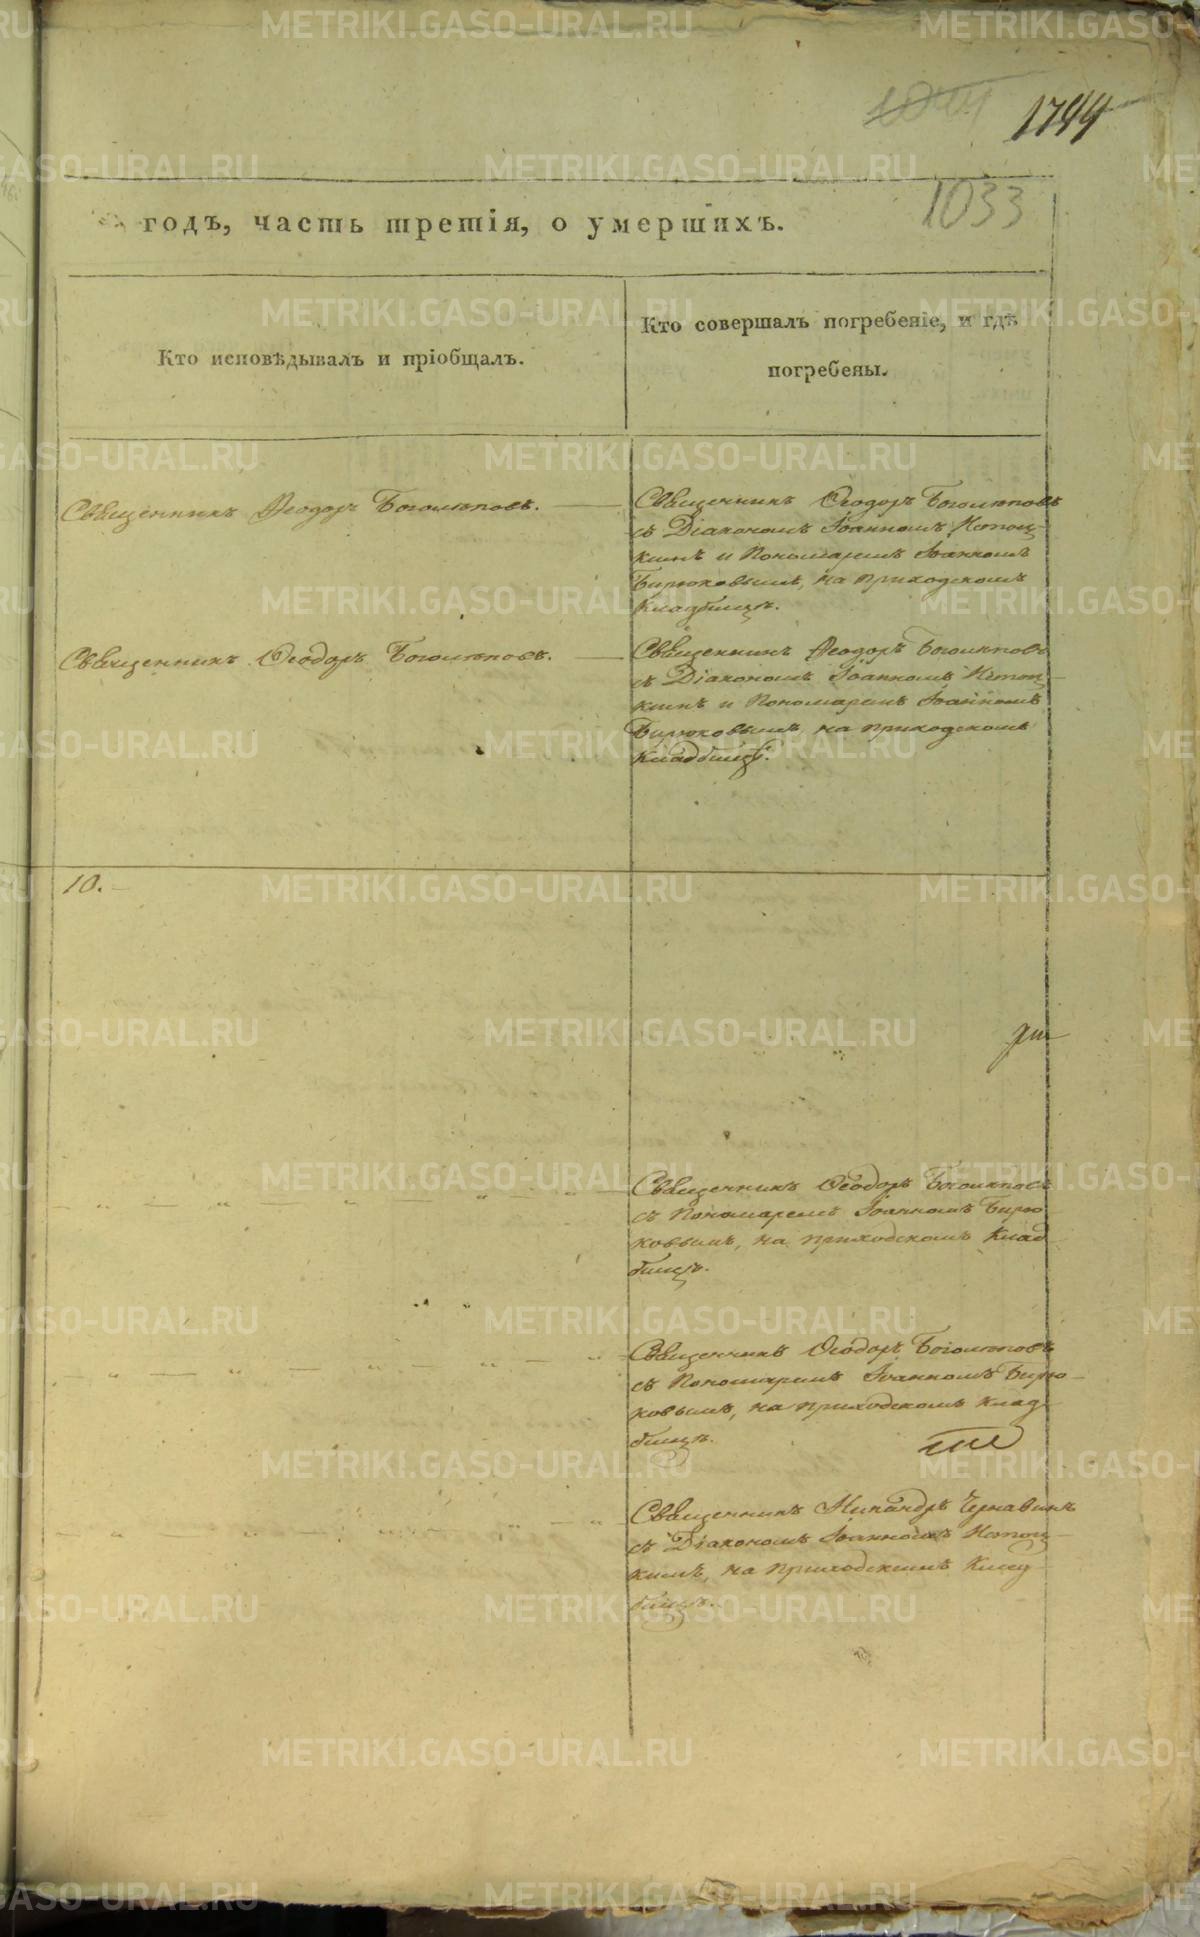 1744
1033
годъ, часть третія, о умершихъ.
Кто исповѣдывалъ и пріобщалъ.
Кто совершалъ погребеніе, и гдѣ
погребены.
Священникъ Ѳеодоръ Боголѣповъ.
Священникъ Ѳеодоръ Боголѣповъ
съ Діакономъ Іоанномъ
и Пономаремъ Іоанномъ
Бирюковымъ, на приходскомъ
Кладбищѣ.
Священникъ Ѳеодоръ Боголѣповъ.
Священникъ Ѳеодоръ Боголѣповъ
съ Діакономъ Іоанномъ
и Пономаремъ Іоанномъ
Бирюковымъ, на приходскомъ
Кладбищѣ.
10.
Священникъ Ѳеодоръ Боголѣповъ
съ Пономаремъ Іоанномъ Бирю
ковымъ, на приходскомъ Клад
бищѣ.
Священникъ Ѳеодоръ Боголѣповъ
съ Пономаремъ Іоанномъ Бирю-
ковымъ, на приходскомъ клад-
бищѣ.
Священникъ Никандръ Чернавинъ
съ Діакономъ Іоанномъ
на приходскомъ Клад-
бищѣ.
METRIKI.GASO-URAL.RU